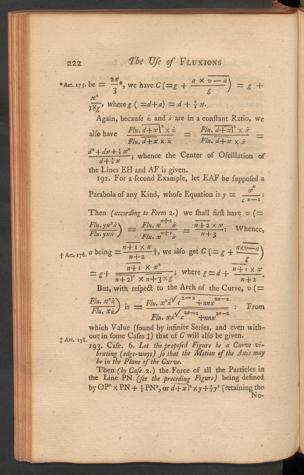 222 The Use of FLUXIONS
*Art. 175. be = 2x/3 *, we have C (= g + a × v — a / g) = g +
x²/18g, where g (= d + a) = d + ⅔ x.
Again, because u̇ and ẋ are in a constant Ratio, we
also have
; whence the Center of Oscillation of
the Lines EH and AF is given.
192. For a second Example, let EAF be supposed a
Parabola of any Kind, whose Equation is y =
Then (according to Form 2.) we shall first have v (=
Whence,
† Art. 176. a being = n+1 × x / n+2 †, we also get C (= g +
= g + ; where g = d + n+1 × x / n+2
But, with respect to the Arch of the Curve, v (=
is = From
which Value (found by infinite Series, and even with-
‡ Art. 138. out in some Cases ‡) that of C will also be given.
193. Case. 6. Let the proposed Figure be a Curve vi-
brating (edge-ways) so that the Motion of the Axis may
be in the Plane of the Curve.
Then (by Case 2.) the Force of all the Particles in
the Line PN (see the preceding Figure) being defined
by OP² × PN + ⅓ PN³, or d + x|² × y + ⅓ y³ (retaining the
No-